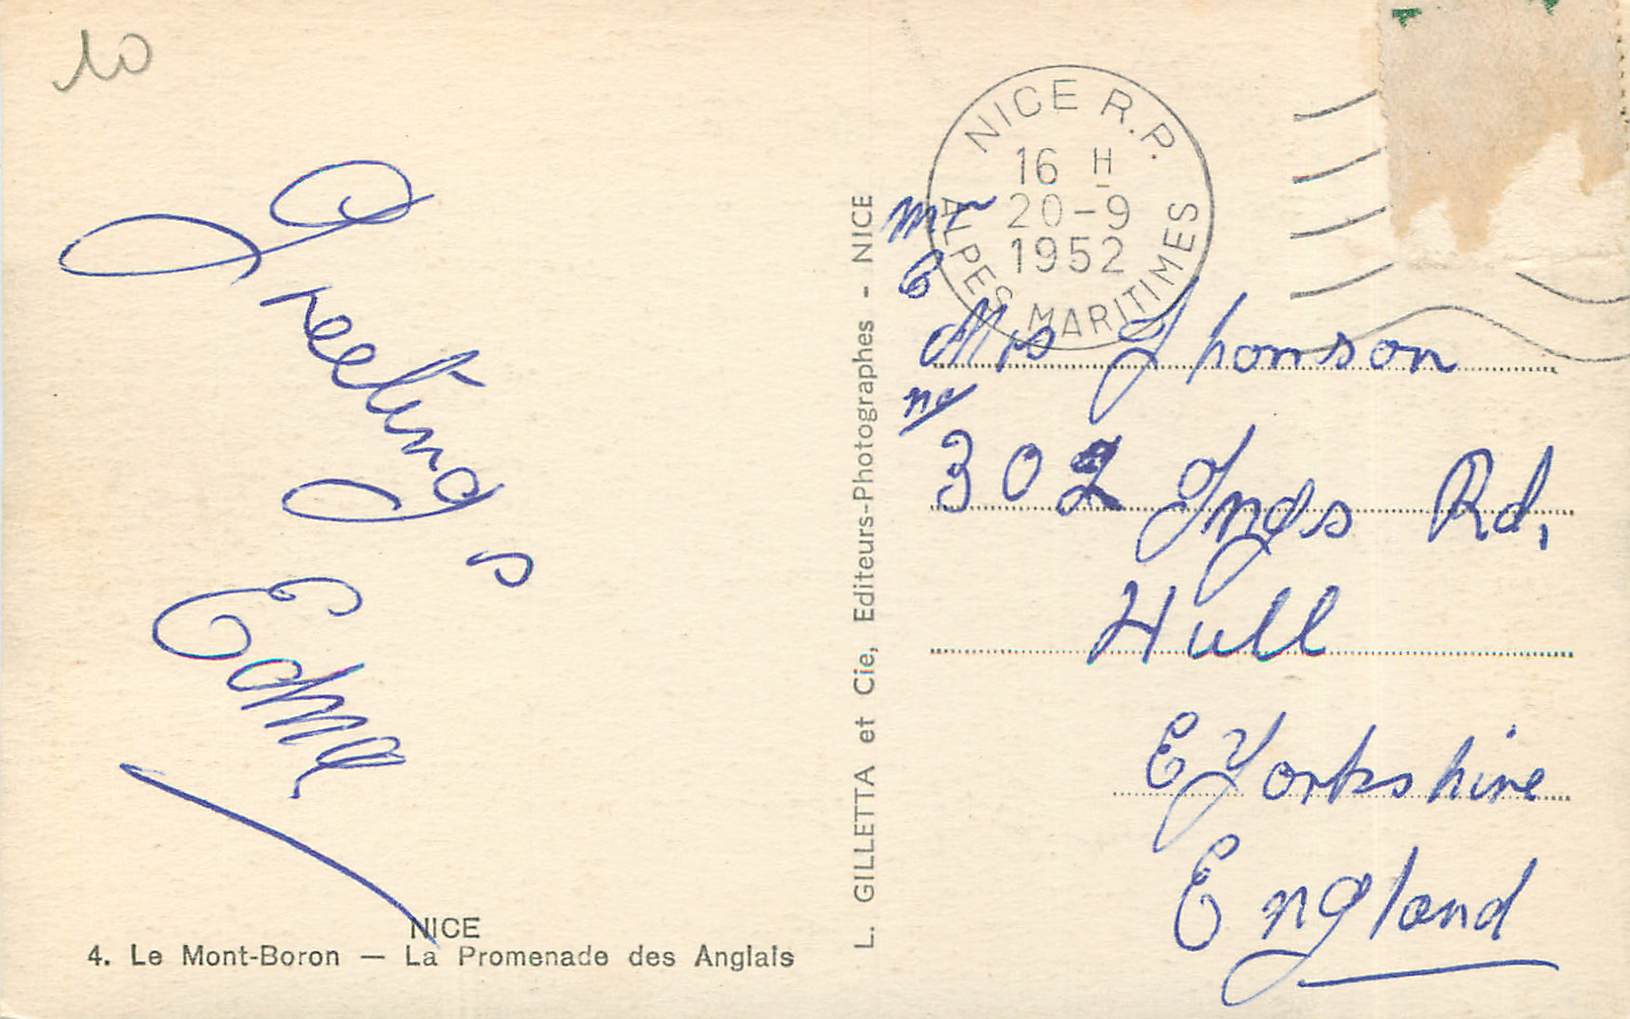 10
Greetings
Edme
NICE
4. Le Mont-Boron — La Promenade des Anglais
L. GILLETTA et Cie, Editeurs-Photographes - NICE
NICE R.P.
16 H
20-9
1952
ALPES MARITIMES
Mr
&
Mrs Thomson
no/
302 Ings Rd,
Hull
E Yorkshire
England